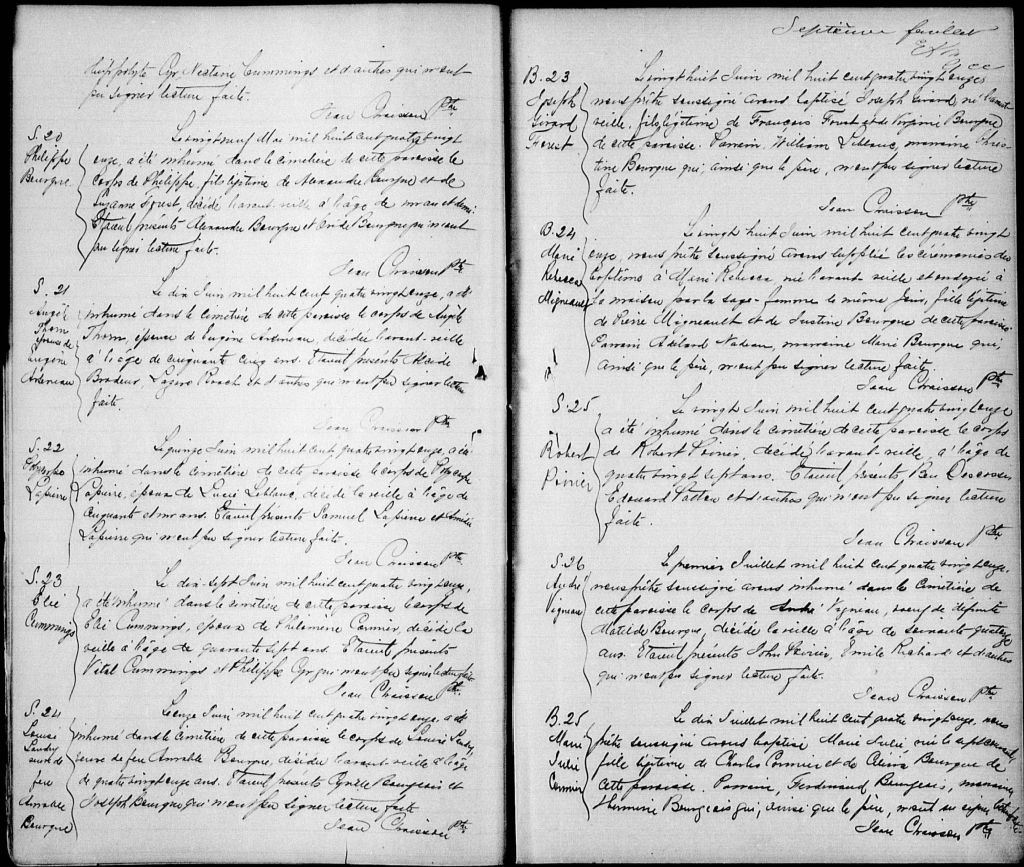 Hyppolyte Cyr Nectaire Cummings et d'autres qui n'ont
pu signer lecture faite.
Jean Chraisson Ptre
S. 20
Philippe
Bourque
Le vingt neuf Mai mil huit cent quatre vingt
onze, a été inhumé dans le cimetière de cette paroisse le
corps de Philippe, fils légitime de Alexandre Bourque et de
Suzanne Forest, décédé l'avant-veille à l'âge de un an et demi.
Etaient présents Alexandre Bourque et André Bourque qui n'ont
pu signer lecture faite.
Jean Chraisson Ptre
S. 21
Angèle
Thom
épouse de
Eugène
Arseneau
Le dix Juin mil huit cent quatre vingt onze, a été
inhumé dans le cimetière de cette paroisse le corps de Angèle
Thom, épouse de Eugène Arseneau, décédée l'avant-veille
à l'âge de cinquante cinq ans. Etaient présents
Brodeur, Lazare Roach et d'autres qui n'ont pu signer lecture
faite.
Jean Chraisson Ptre
S. 22
Lapierre
Le quinze Juin mil huit cent quatre vingt onze, a été
inhumé dans le cimetière de cette paroisse le corps de
Lapierre, époux de Lucie Leblanc, décédé la veille à l'âge de
cinquante et un ans. Etaient présents Samuel Lapierre et Amédée
Lapierre qui n'ont pu signer lecture faite.
Jean Chraisson Ptre
S. 23
Elié
Cummings
Le dix sept Juin mil huit cent quatre vingt onze,
a été inhumé dans le cimetière de cette paroisse le corps de
Elié Cummings, époux de Philomène Cormier, décédé la
veille à l'âge de quarante sept ans. Etaient présents
Vital Cummings et Philippe Cyr qui n'ont pu signer lecture faite
Jean Chraisson Ptre
S. 24
Louise
Landry
veuve de
feu
Amable
Bourque
Le onze Juin mil huit cent quatre vingt onze, a été
inhumé dans le cimetière de cette paroisse le corps de Louise Landry
veuve de feu Amable Bourque, décédée l'avant veille à l'âge
de quatre vingt onze ans. Etaient présents Cyrille Bourgeois et
Joseph Bourque qui n'ont pu signer lecture faite
Jean Chraisson Ptre
Septième feuillet
B. 23
Joseph
Girard
Forest
Le vingt huit Juin mil huit cent quatre vingt onze,
nous prêtre soussigné avons baptisé Joseph Girard, né l'avant
veille, fils légitime de François Forest et de Virginie Bourque
de cette paroisse. Parrain, William Leblanc, marraine Chris-
tine Bourque qui, ainsi que le père, n'ont pu signer lecture
faite.
Jean Chraisson Ptre
B. 24
Marie
Rebecca
Migneault
Le vingt huit Juin mil huit cent quatre vingt
onze, nous prêtre soussigné avons supplié les cérémonies du
baptême à Marie Rebecca, née l'avant veille et ondoyée à
la maison par la sage-femme le même jour, fille légitime
de Pierre Migneault et de Justine Bourque de cette paroisse
Parrain Adelard Nadeau, marraine Marie Bourque qui,
ainsi que le père, n'ont pu signer lecture faite.
Jean Chraisson Ptre
S. 25
Robert
Poirier
Le vingt Juin mil huit cent quatre vingt onze
a été inhumé dans le cimetière de cette paroisse le corps
de Robert Poirier, décédé l'avant veille, à l'âge de
quatre vingt sept ans. Etaient présents, Ben
Edouard et d'autres qui n'ont pu signer lecture
faite.
Jean Chraisson Ptre
S. 26
André
Vigneau
Le premier Juillet mil huit cent quatre vingt onze,
nous prêtre soussigné avons inhumé dans le cimetière de
cette paroisse le corps de André Vigneau, veuf de défunte
Matilde Bourque, décédé la veille à l'âge de soixante quatorze
ans. Etaient présents John, Emile Richard et d'autres
qui n'ont pu signer lecture faite.
Jean Chraisson Ptre
B. 25
Marie
Julie
Cormier
Le dix Juillet mil huit cent quatre vingt onze, nous
prêtre soussigné avons baptisé Marie Julie, née le sept courant,
fille légitime de Charles Cormier et de Bourque de
cette paroisse. Parrain, Ferdinand Bourgeois, marraine
Bourgeois qui, ainsi que le père, n'ont su signer lecture faite.
Jean Chraisson Ptre